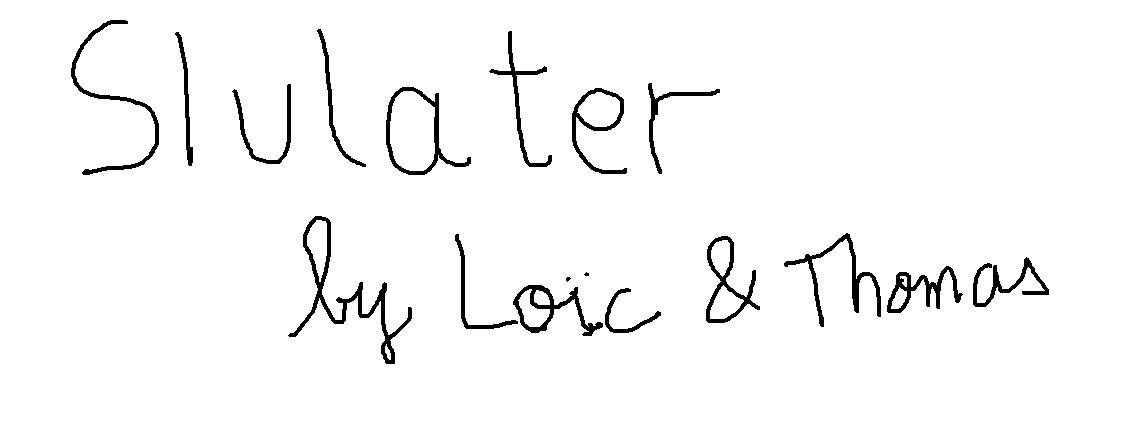 Slulater
by Loïc & Thomas